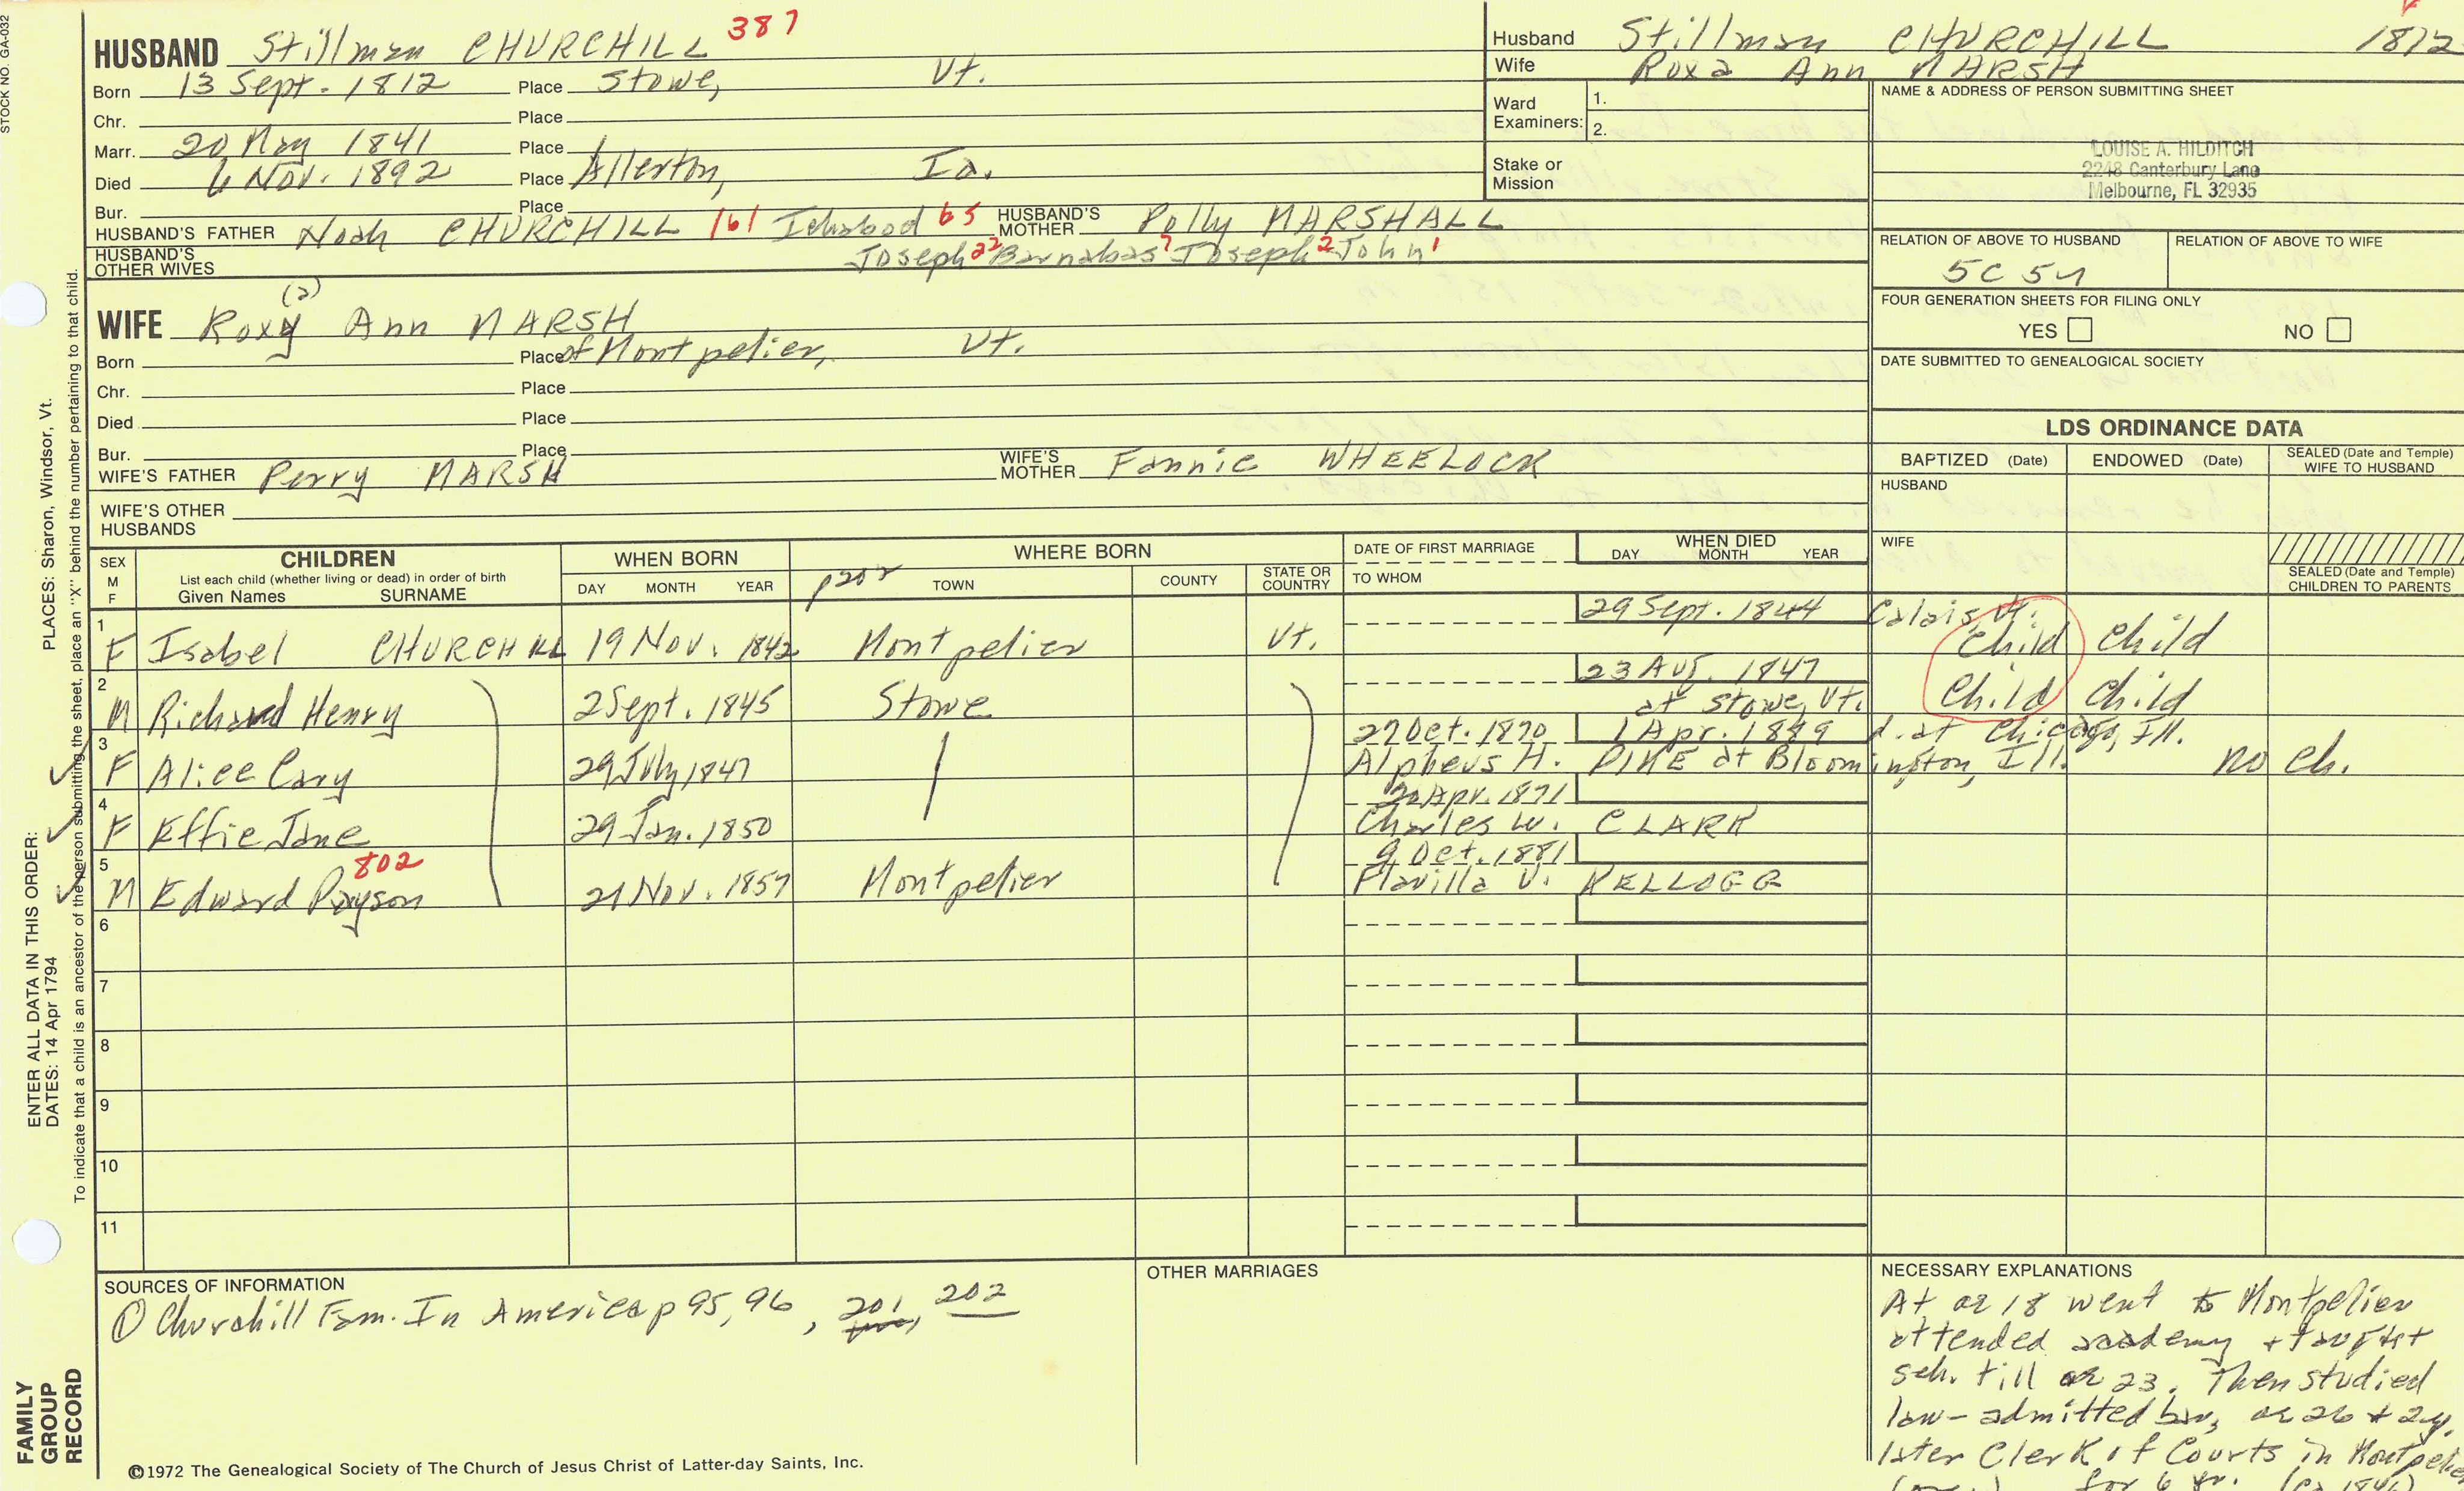 STOCK NO. GA-032
HUSBAND Stillman CHURCHILL 387
Born 13 Sept. 1812 Place Stowe, Vt.
Chr. Place
Marr. 20 May 1841 Place
Died 6 Nov. 1892 Place Allerton, Ia.
Bur. Place
HUSBAND'S FATHER Noah CHURCHILL 161 Ichabod 65 HUSBAND'S MOTHER Polly MARSHALL
HUSBAND'S OTHER WIVES Joseph 22 Barnabas 7 Joseph 2 John 1
(a)
WIFE Roxy Ann MARSH
Born Place of Montpelier, Vt.
Chr. Place
Died Place
Bur. Place
WIFE'S FATHER Perry MARSH WIFE'S MOTHER Fannie WHEELOCK
WIFE'S OTHER HUSBANDS
Husband Stillman CHURCHILL 1812
Wife Roxa Ann MARSH
Ward Examiners: 1.
2.
Stake or Mission
NAME & ADDRESS OF PERSON SUBMITTING SHEET
LOUISE A. HILDITCH
2248 Canterbury Lane
Melbourne, FL 32935
RELATION OF ABOVE TO HUSBAND RELATION OF ABOVE TO WIFE
5C 5
FOUR GENERATION SHEETS FOR FILING ONLY
YES NO
DATE SUBMITTED TO GENEALOGICAL SOCIETY
LDS ORDINANCE DATA
BAPTIZED (Date) ENDOWED (Date) SEALED (Date and Temple) WIFE TO HUSBAND
HUSBAND
WIFE
SEALED (Date and Temple) CHILDREN TO PARENTS
SEX M F CHILDREN WHEN BORN WHERE BORN DATE OF FIRST MARRIAGE WHEN DIED
List each child (whether living or dead) in order of birth
Given Names SURNAME DAY MONTH YEAR TOWN COUNTY STATE OR COUNTRY TO WHOM DAY MONTH YEAR
1 29 Sept. 1844 Calais, Vt.
F Isabel CHURCHILL 19 Nov. 1842 Montpelier Vt. Child Child
2 23 Aug. 1847
M Richard Henry 2 Sept. 1845 Stowe at Stowe, Vt. Child Child
3 27 Oct. 1870 1 Apr. 1889 d. at Chicago, Ill.
F Alice Cary 29 July 1847 Alpheus H. PIKE at Bloomington, Ill. no ch.
4 20 Apr. 1871
F Effie Jane 29 Jan. 1850 Charles W. CLARK
5 802 9 Oct. 1881
M Edward Payson 21 Nov. 1857 Montpelier Flavilla V. KELLOGG
6
7
8
9
10
11
SOURCES OF INFORMATION
① Churchill Fam. In America p 95, 96, 201, 202
OTHER MARRIAGES
NECESSARY EXPLANATIONS
At ae 18 went to Montpelier
attended academy + taught
sch. till ae 23. Then studied
law - admitted bar, ae 26 + 2 y.
later Clerk of Courts in Montpelier
for 6 yr.
©1972 The Genealogical Society of The Church of Jesus Christ of Latter-day Saints, Inc.
FAMILY GROUP RECORD
ENTER ALL DATA IN THIS ORDER:
DATES: 14 Apr 1794
PLACES: Sharon, Windsor, Vt.
To indicate that a child is an ancestor of the person submitting the sheet, place an "X" behind the number pertaining to that child.